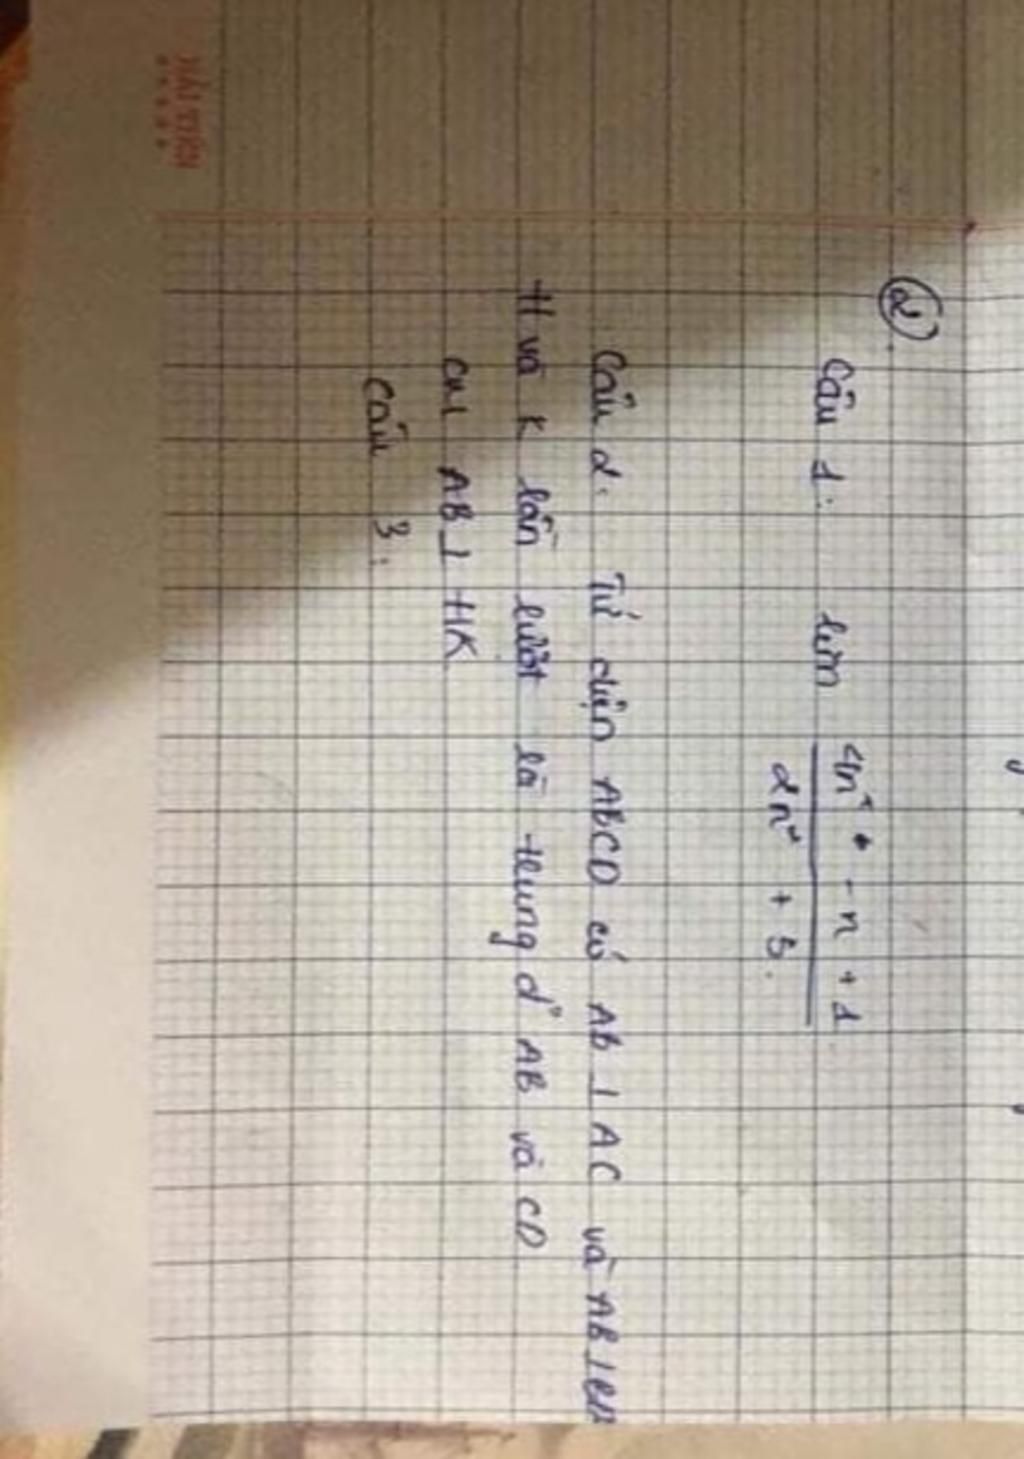 ②
Câu 1: lim (4n² - n + 1) / (2n² + 5)
Câu 2: Tứ diện ABCD có AB ⊥ AC và AB ⊥ BD
H và K lần lượt là trung đ° AB và CD
CM AB ⊥ HK
Câu 3:
HẢI TIẾN